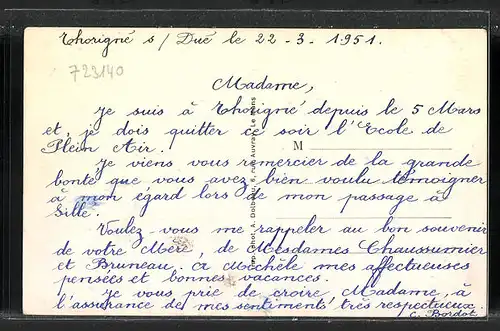 Thorigné s/ Dué le 22 - 3 - 1951.
723140
Madame,
Je suis à Thorigné depuis le 5 Mars
et, je dois quitter ce soir l'Ecole de
Plein Air.
M
Je viens vous remercier de la grande
bonté que vous avez bien voulu témoigner
à mon égard lors de mon passage à
Sillé.
Voulez vous me rappeler au bon souvenir
de votre Mère, de Mesdames Chaussumier
et Bruneau. A Michèle mes affectueuses
pensées et bonnes vacances.
Je vous prie de croire, Madame, à
l'assurance de mes sentiments très respectueux.
C. Bordot
rue Auvray, Le Mans